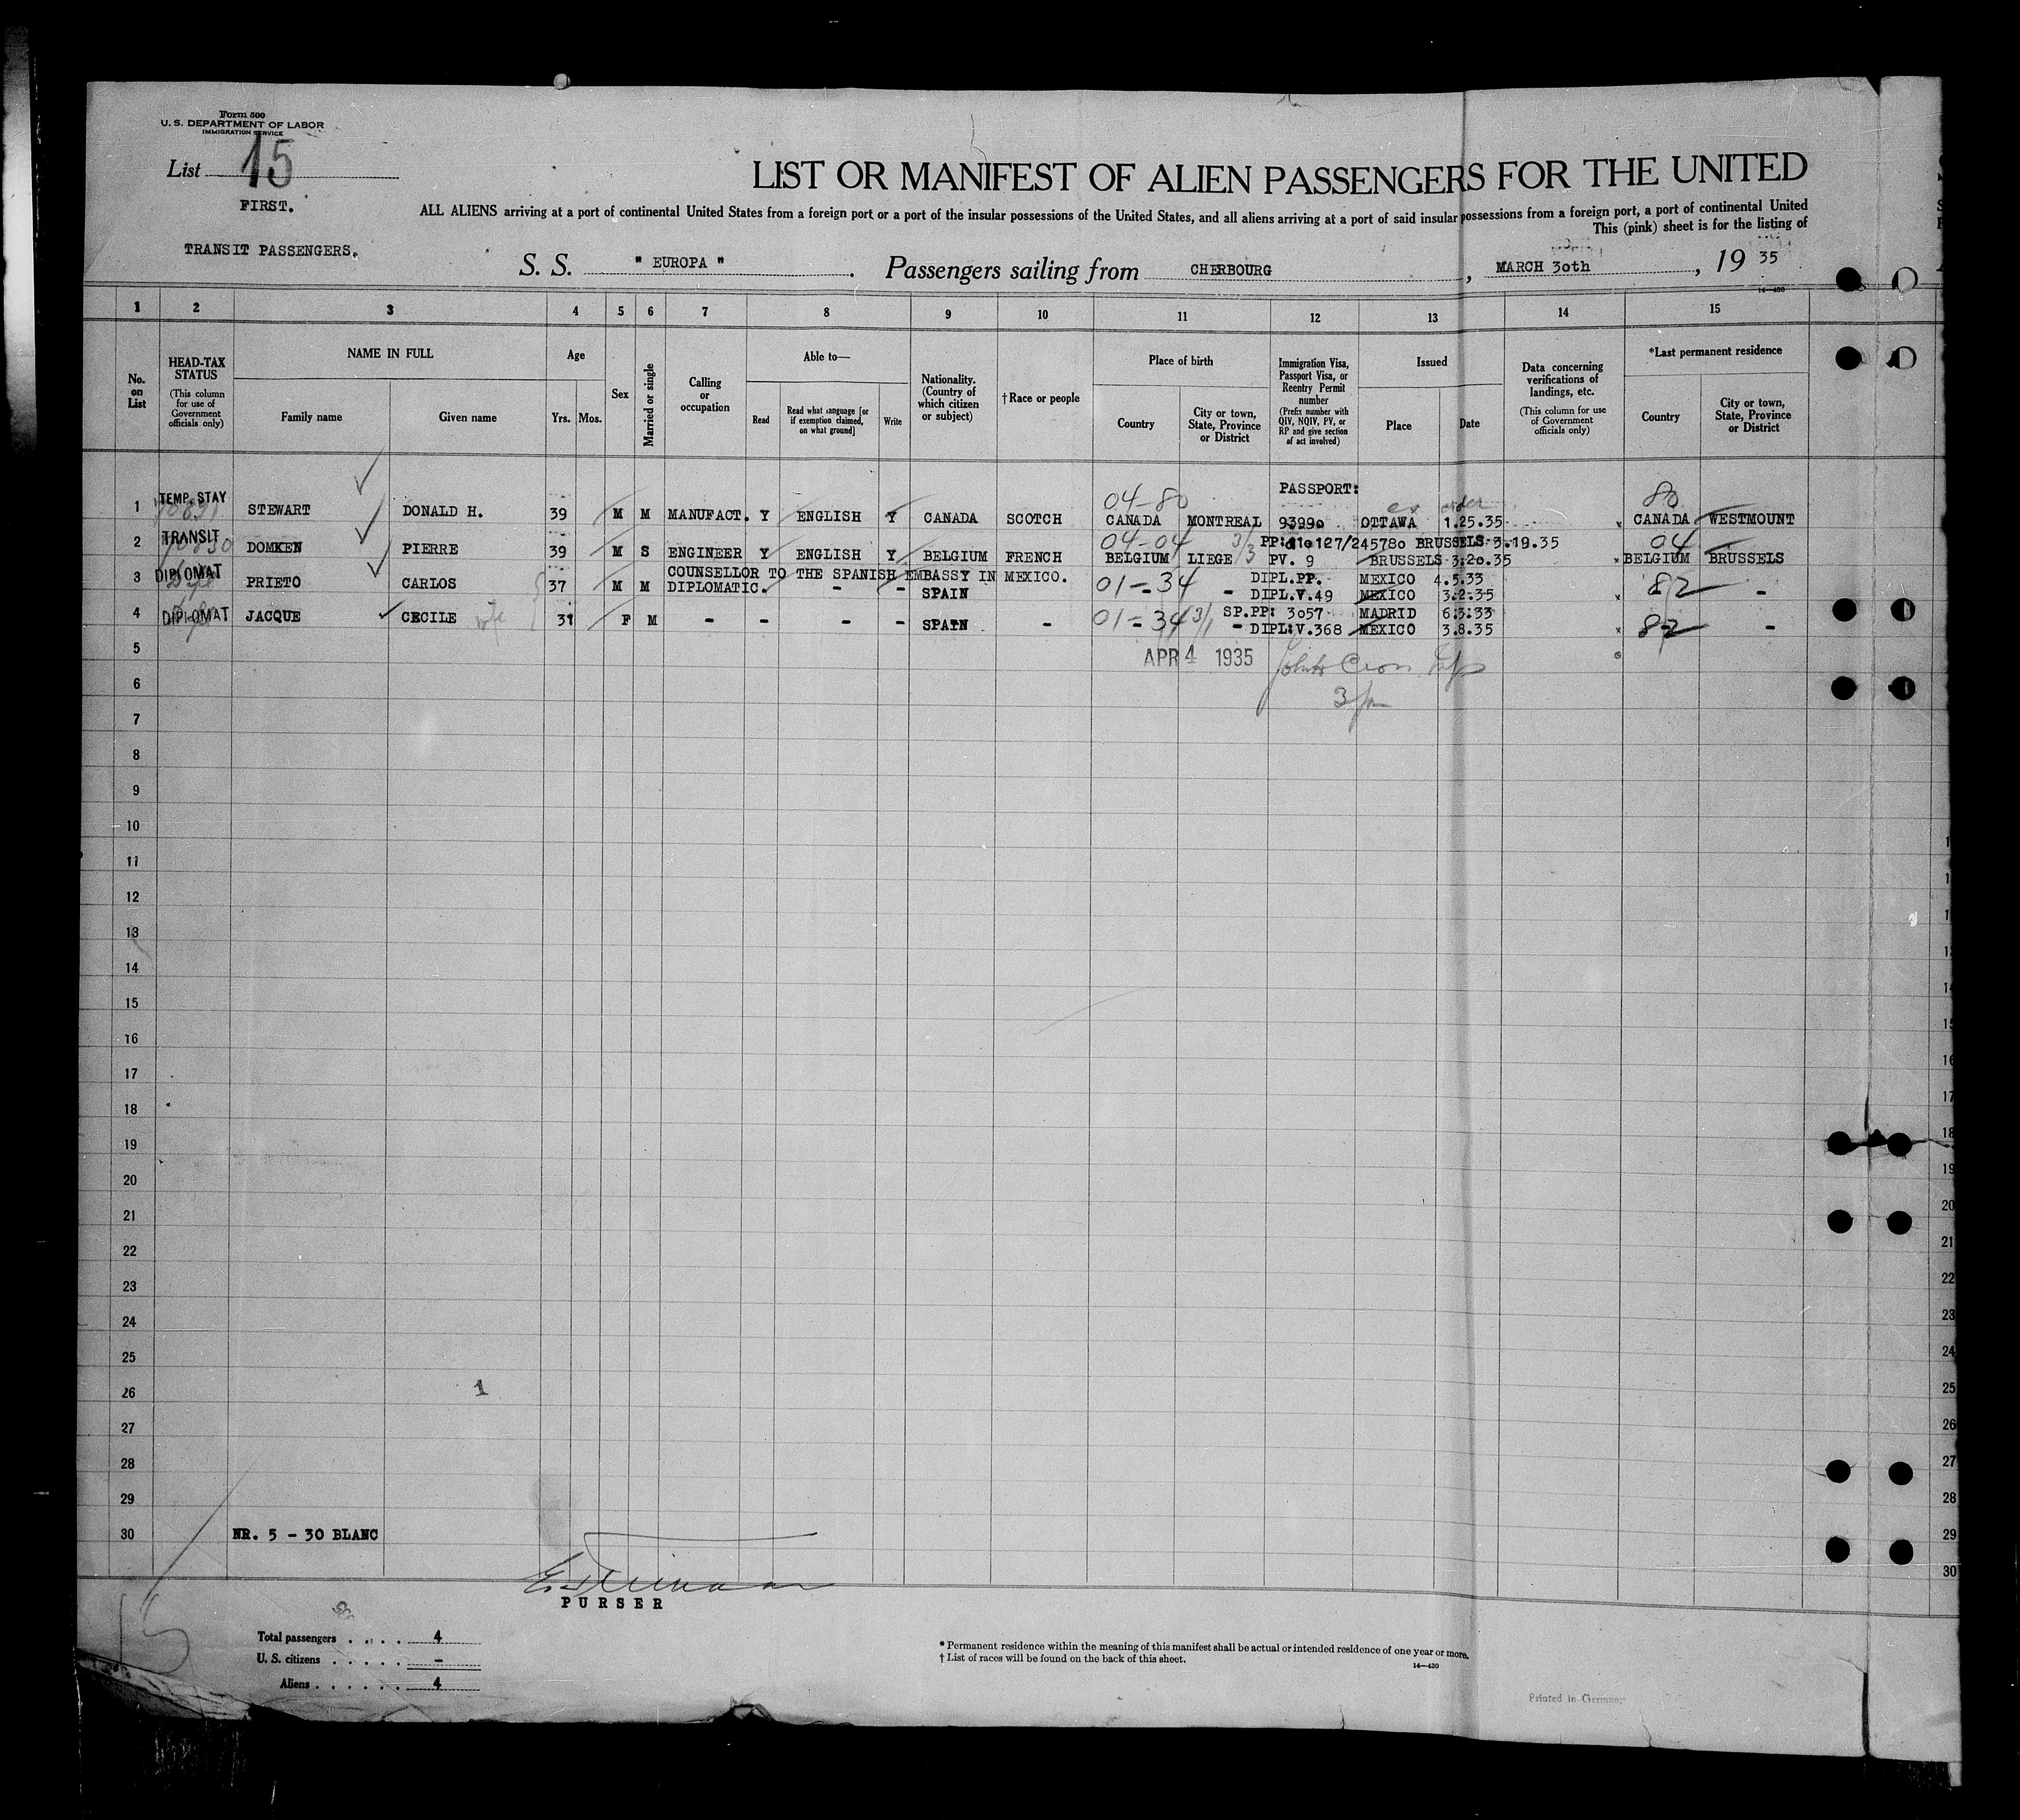 Form 500
U. S. DEPARTMENT OF LABOR
IMMIGRATION SERVICE
List 15
FIRST.
TRANSIT PASSENGERS.
LIST OR MANIFEST OF ALIEN PASSENGERS FOR THE UNITED
ALL ALIENS arriving at a port of continental United States from a foreign port or a port of the insular possessions of the United States, and all aliens arriving at a port of said insular possessions from a foreign port, a port of continental United
This (pink) sheet is for the listing of
S. S. " EUROPA " . Passengers sailing from CHERBOURG , MARCH 30th , 19 35
14—430
1 2 3 4 5 6 7 8 9 10 11 12 13 14 15
No. on List
HEAD-TAX STATUS
(This column for use of Government officials only)
NAME IN FULL
Family name
Given name
Age
Yrs. Mos.
Sex
Married or single
Calling or occupation
Able to—
Read
Read what language [or if exemption claimed, on what ground]
Write
Nationality. (Country of which citizen or subject)
†Race or people
Place of birth
Country
City or town, State, Province or District
Immigration Visa, Passport Visa, or Reentry Permit number
(Prefix number with QIV, NQIV, PV, or RP and give section of act involved)
Issued
Place
Date
Data concerning verifications of landings, etc.
(This column for use of Government officials only)
*Last permanent residence
Country
City or town, State, Province or District
PASSPORT:
04-80 80
1 TEMP. STAY STEWART DONALD H. 39 M M MANUFACT. Y ENGLISH Y CANADA SCOTCH CANADA MONTREAL 93990 OTTAWA 1.25.35 CANADA WESTMOUNT
04-04 3/3 04
2 TRANSIT DOMKEN PIERRE 39 M S ENGINEER Y ENGLISH Y BELGIUM FRENCH BELGIUM LIEGE PP: 127/245780 BRUSSELS 3.19.35
PV. 9 BRUSSELS 3.20.35 BELGIUM BRUSSELS
3 DIPLOMAT PRIETO CARLOS 37 M M COUNSELLOR TO THE SPANISH EMBASSY IN MEXICO.
DIPLOMATIC. - - SPAIN 01-34 - DIPL.PP. MEXICO 4.5.33
DIPL.V.49 MEXICO 3.2.35 82 -
4 DIPLOMAT JACQUE CECILE wife 31 F M - - - - SPAIN - 01-34 3/1 - SP.PP: 3057 MADRID 6.3.33
DIPL.V.368 MEXICO 3.8.35 82 -
5
APR 4 1935
6
7
8
9
10
11
12
13
14
15
16
17
18
19
20
21
22
23
24
25
26 1
27
28
29
30 NR. 5 - 30 BLANC
PURSER
15
Total passengers . . . . 4
U. S. citizens . . . . . –
Aliens . . . . . . 4
* Permanent residence within the meaning of this manifest shall be actual or intended residence of one year or more.
† List of races will be found on the back of this sheet.
14—430
Printed in Germany